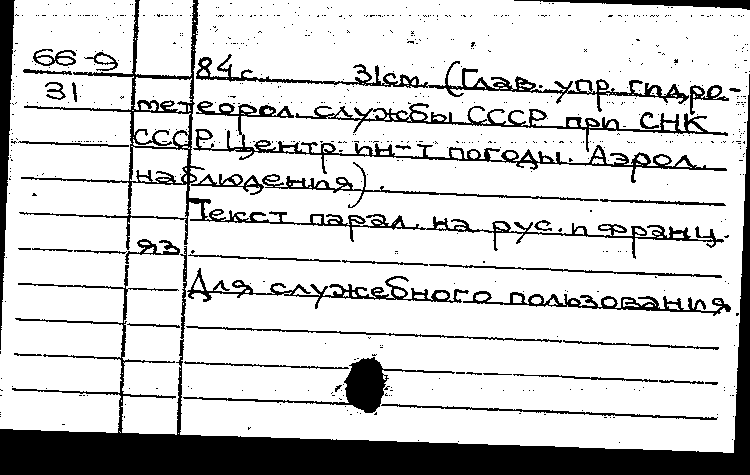 66-9
31
84 с. 31 см. (Глав. упр. гидро-
метеорол. службы СССР при СНК
СССР. Центр. ин-т погоды. Аэрол.
наблюдения).
Текст парал. на рус. и франц.
яз.
Для служебного пользования.